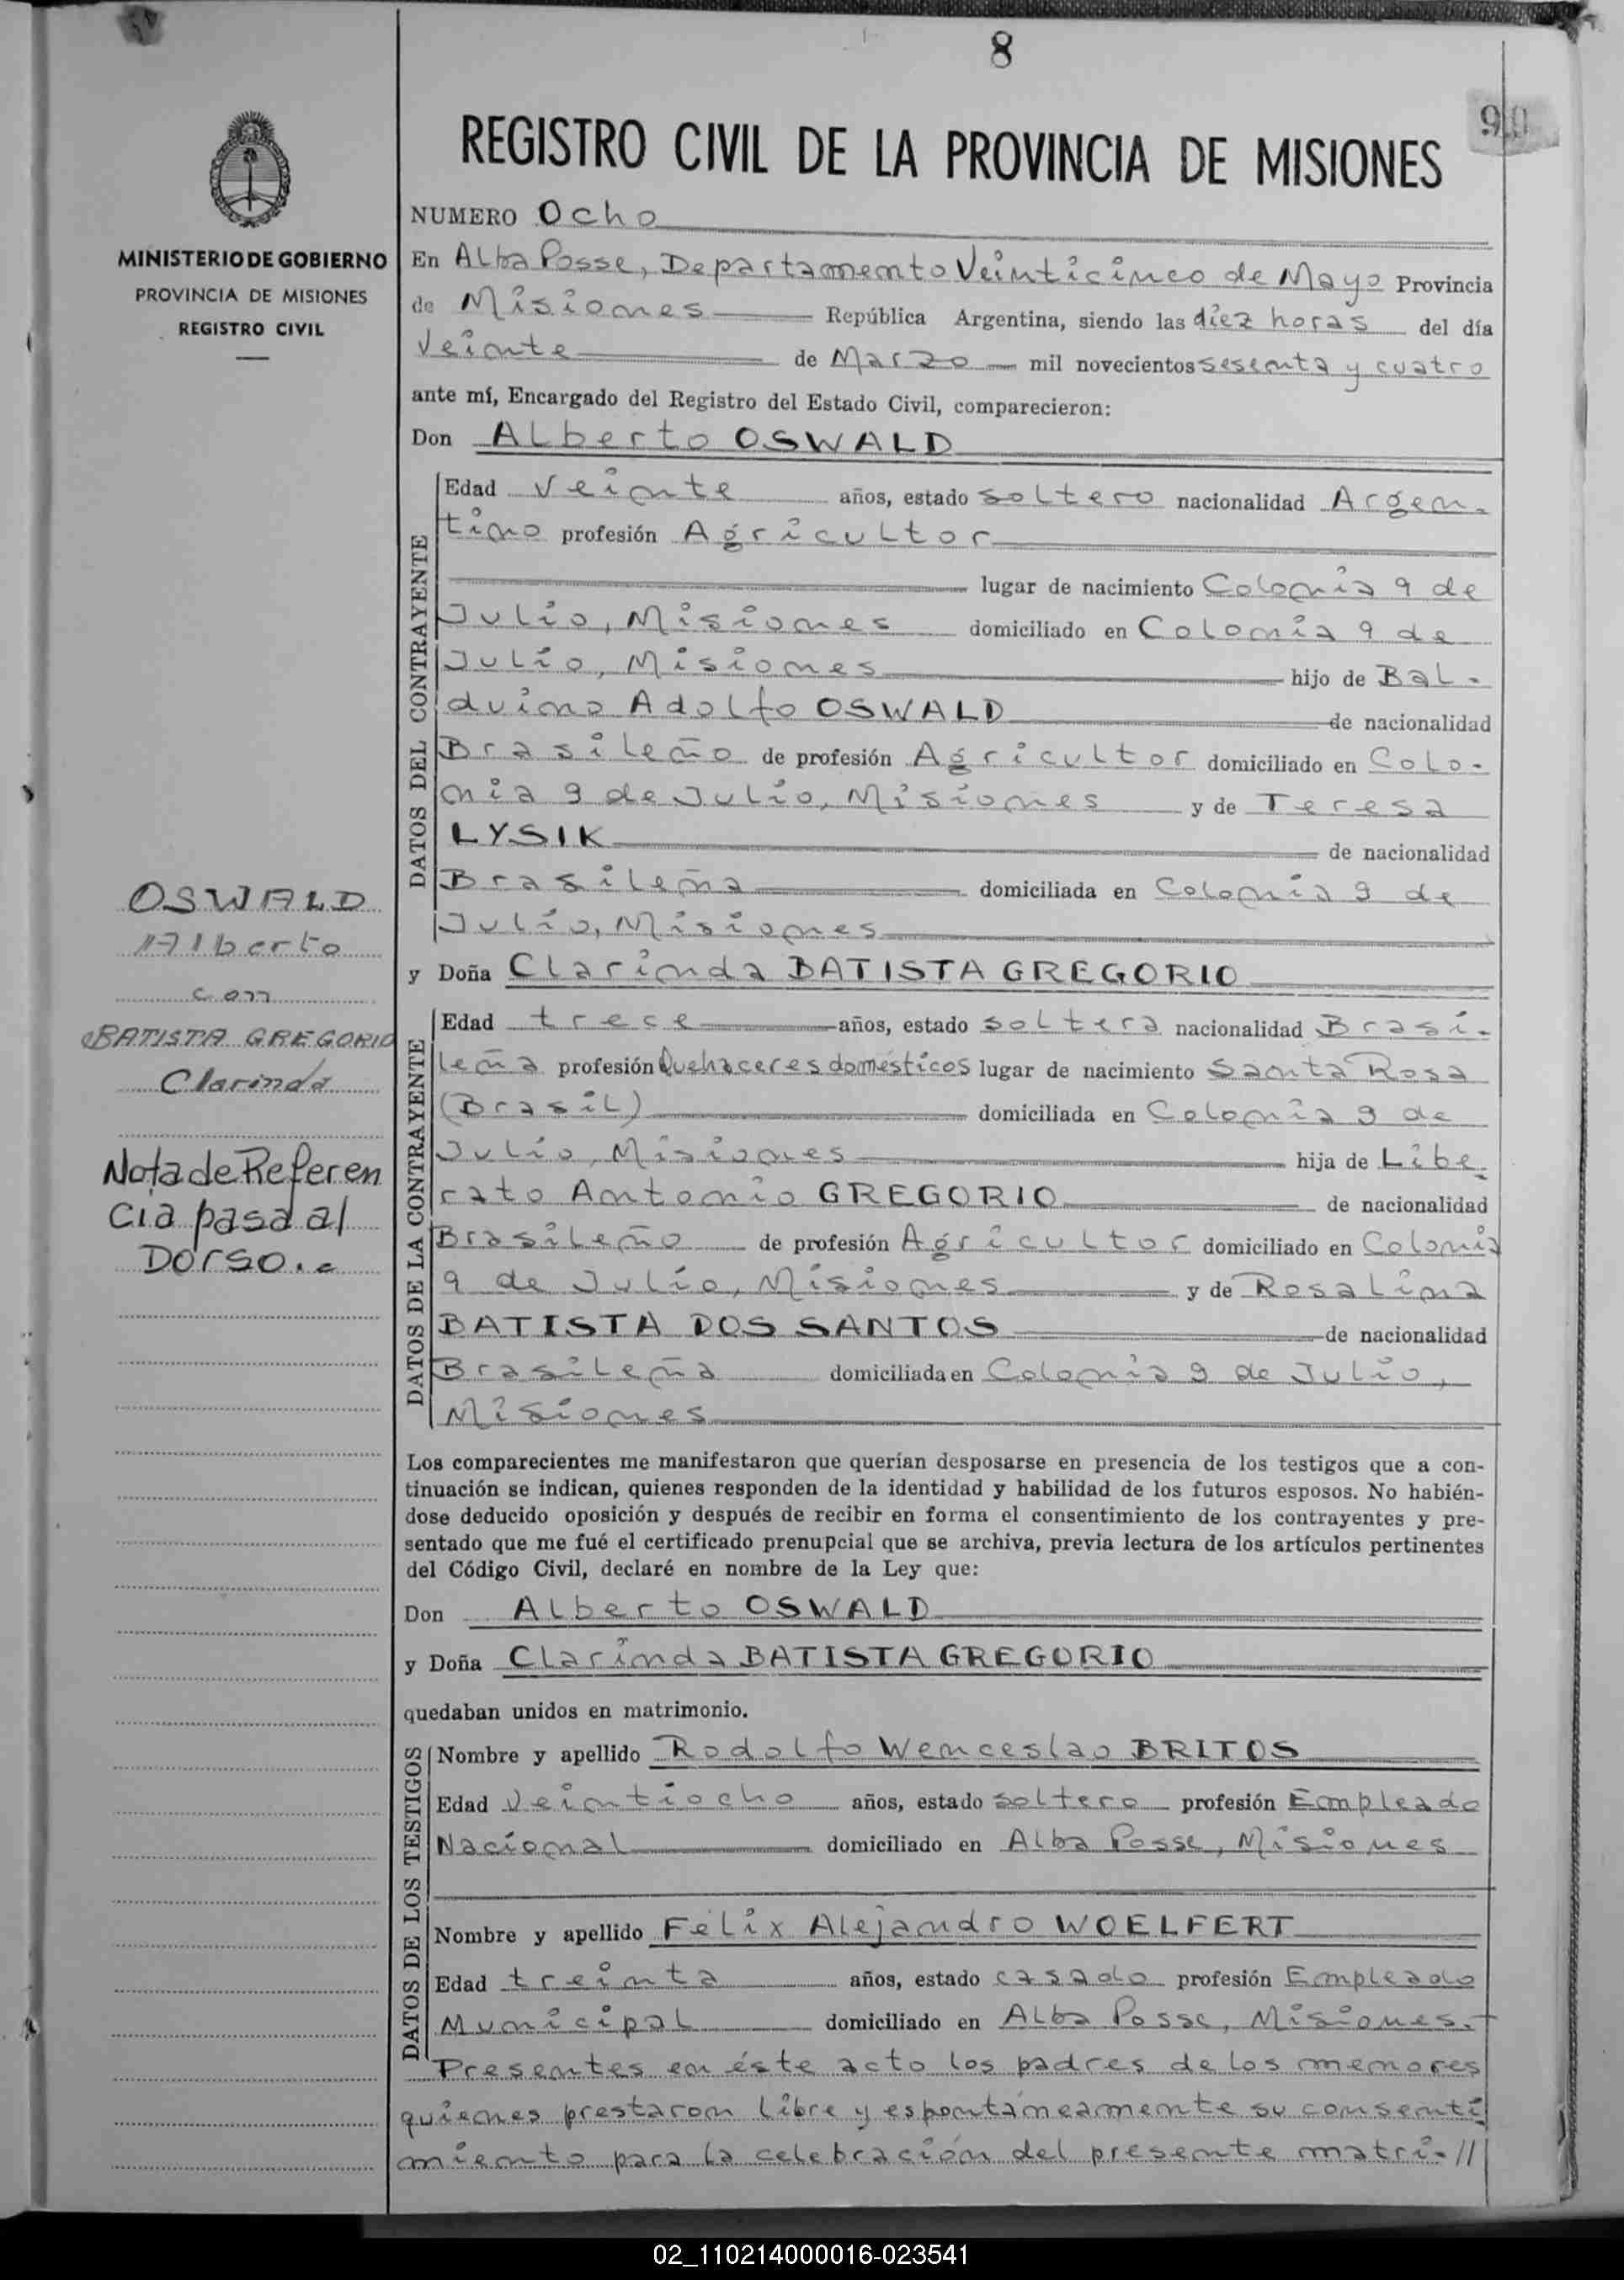 8
90
REGISTRO CIVIL DE LA PROVINCIA DE MISIONES
MINISTERIO DE GOBIERNO
PROVINCIA DE MISIONES
REGISTRO CIVIL
NUMERO Ocho
En Alba Posse, Departamento Veinticinco de Mayo Provincia
de Misiones República Argentina, siendo las diez horas del día
Veinte de Marzo mil novecientos sesenta y cuatro
ante mí, Encargado del Registro del Estado Civil, comparecieron:
Don Alberto OSWALD
DATOS DEL CONTRAYENTE
Edad veinte años, estado soltero nacionalidad Argen-
tino profesión Agricultor
lugar de nacimiento Colonia 9 de
Julio, Misiones domiciliado en Colonia 9 de
Julio, Misiones hijo de Bal-
duino Adolfo OSWALD de nacionalidad
Brasileño de profesión Agricultor domiciliado en Colo-
nia 9 de Julio, Misiones y de Teresa
LYSIK de nacionalidad
Brasileña domiciliada en Colonia 9 de
Julio, Misiones
y Doña Clarinda BATISTA GREGORIO
DATOS DE LA CONTRAYENTE
Edad trece años, estado soltera nacionalidad Brasi-
leña profesión Quehaceres domésticos lugar de nacimiento Santa Rosa
(Brasil) domiciliada en Colonia 9 de
Julio, Misiones hija de Libe-
rato Antonio GREGORIO de nacionalidad
Brasileño de profesión Agricultor domiciliado en Colonia
9 de Julio, Misiones y de Rosalina
BATISTA DOS SANTOS de nacionalidad
Brasileña domiciliada en Colonia 9 de Julio,
Misiones
OSWALD
Alberto
con
BATISTA GREGORIO
Clarinda
Nota de Referen
cia pasa al
Dorso.-
Los comparecientes me manifestaron que querían desposarse en presencia de los testigos que a con-
tinuación se indican, quienes responden de la identidad y habilidad de los futuros esposos. No habién-
dose deducido oposición y después de recibir en forma el consentimiento de los contrayentes y pre-
sentado que me fué el certificado prenupcial que se archiva, previa lectura de los artículos pertinentes
del Código Civil, declaré en nombre de la Ley que:
Don Alberto OSWALD
y Doña Clarinda BATISTA GREGORIO
quedaban unidos en matrimonio.
DATOS DE LOS TESTIGOS
Nombre y apellido Rodolfo Wenceslao BRITOS
Edad Veintiocho años, estado soltero profesión Empleado
Nacional domiciliado en Alba Posse, Misiones
Nombre y apellido Félix Alejandro WOELFERT
Edad treinta años, estado casado profesión Empleado
Municipal domiciliado en Alba Posse, Misiones.-
Presentes en éste acto los padres de los menores
quienes prestaron libre y espontáneamente su consenti
miento para la celebración del presente matri-//
02_110214000016-023541